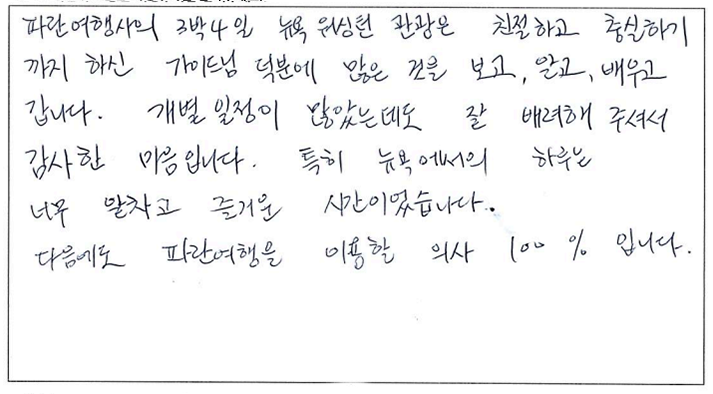 파란여행사의 3박4일 뉴욕 워싱턴 관광은 친절하고 충실하기
까지 하신 가이드님 덕분에 많은 것을 보고, 알고, 배우고
갑니다. 개별 일정이 많았는데도 잘 배려해 주셔서
감사한 마음입니다. 특히 뉴욕에서의 하루는
너무 알차고 즐거운 시간이었습니다.
다음에도 파란여행을 이용할 의사 100 % 입니다.